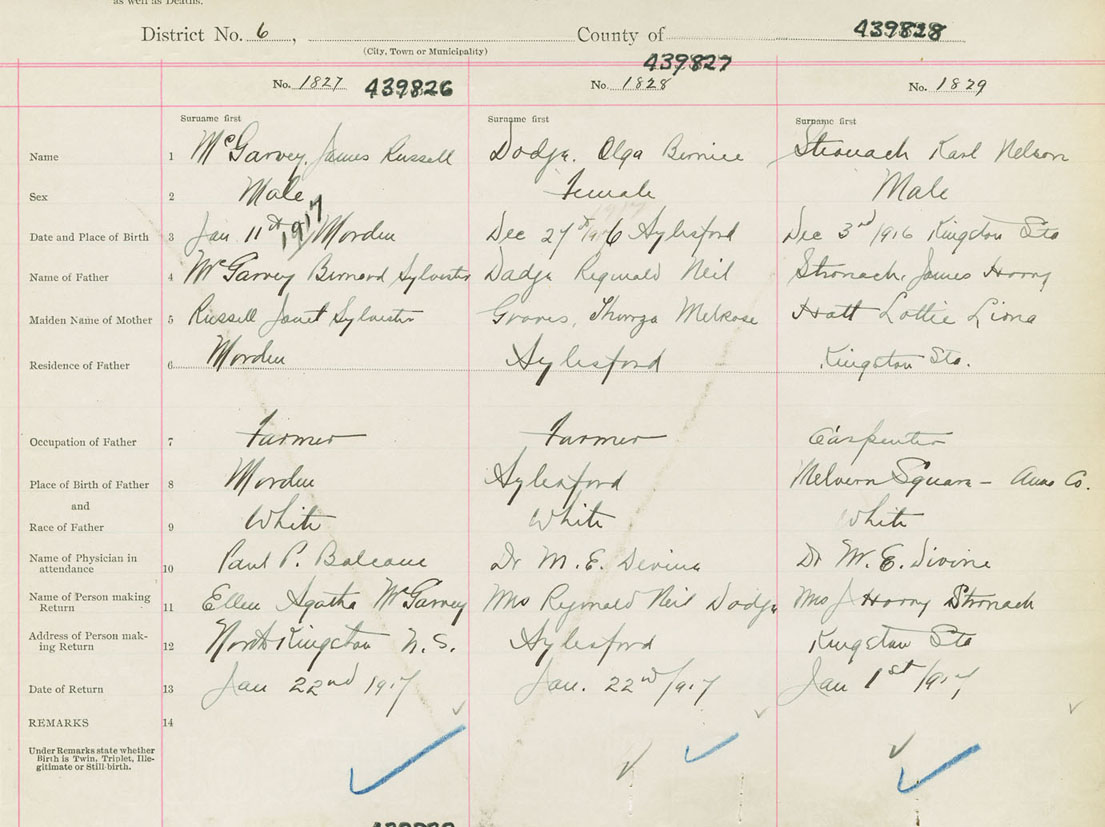 as well as Deaths.
District No. 6, County of 439828
(City, Town or Municipality)
439827
No. 1827 439826 No. 1828 No. 1829
Surname first Surname first Surname first
Name 1 McGarvey, James Russell Dodge. Olga Bernice Stronach Karl Nelson
Sex 2 Male Female Male
Date and Place of Birth 3 Jan 11th 1917 Morden Dec 27th 1916 Aylesford Dec 3rd/1916 Kingston Sta
Name of Father 4 McGarvey Bernard Sylvester Dodge Reginald Neil Stronach, James Harry
Maiden Name of Mother 5 Russell Janet Sylvester Graves, Melrose Hatt Lottie Liona
Residence of Father 6 Morden Aylesford Kingston Sta.
Occupation of Father 7 Farmer Farmer Carpenter
Place of Birth of Father 8 Morden Aylesford Melvern Square - Anna Co.
and
Race of Father 9 White White White
Name of Physician in
attendance 10 Paul P. Balcom Dr M. E. Divine Dr W. E. Divine
Name of Person making
Return 11 Ellen Agatha McGarvey Mrs Reginald Neil Dodge Mrs J Harry Stronach
Address of Person mak-
ing Return 12 North Kingston N.S. Aylesford Kingston Sta
Date of Return 13 Jan 22nd 1917 Jan. 22nd/917 Jan 1st/917
REMARKS 14
Under Remarks state whether
Birth is Twin, Triplet, Ille-
gitimate or Still-birth.